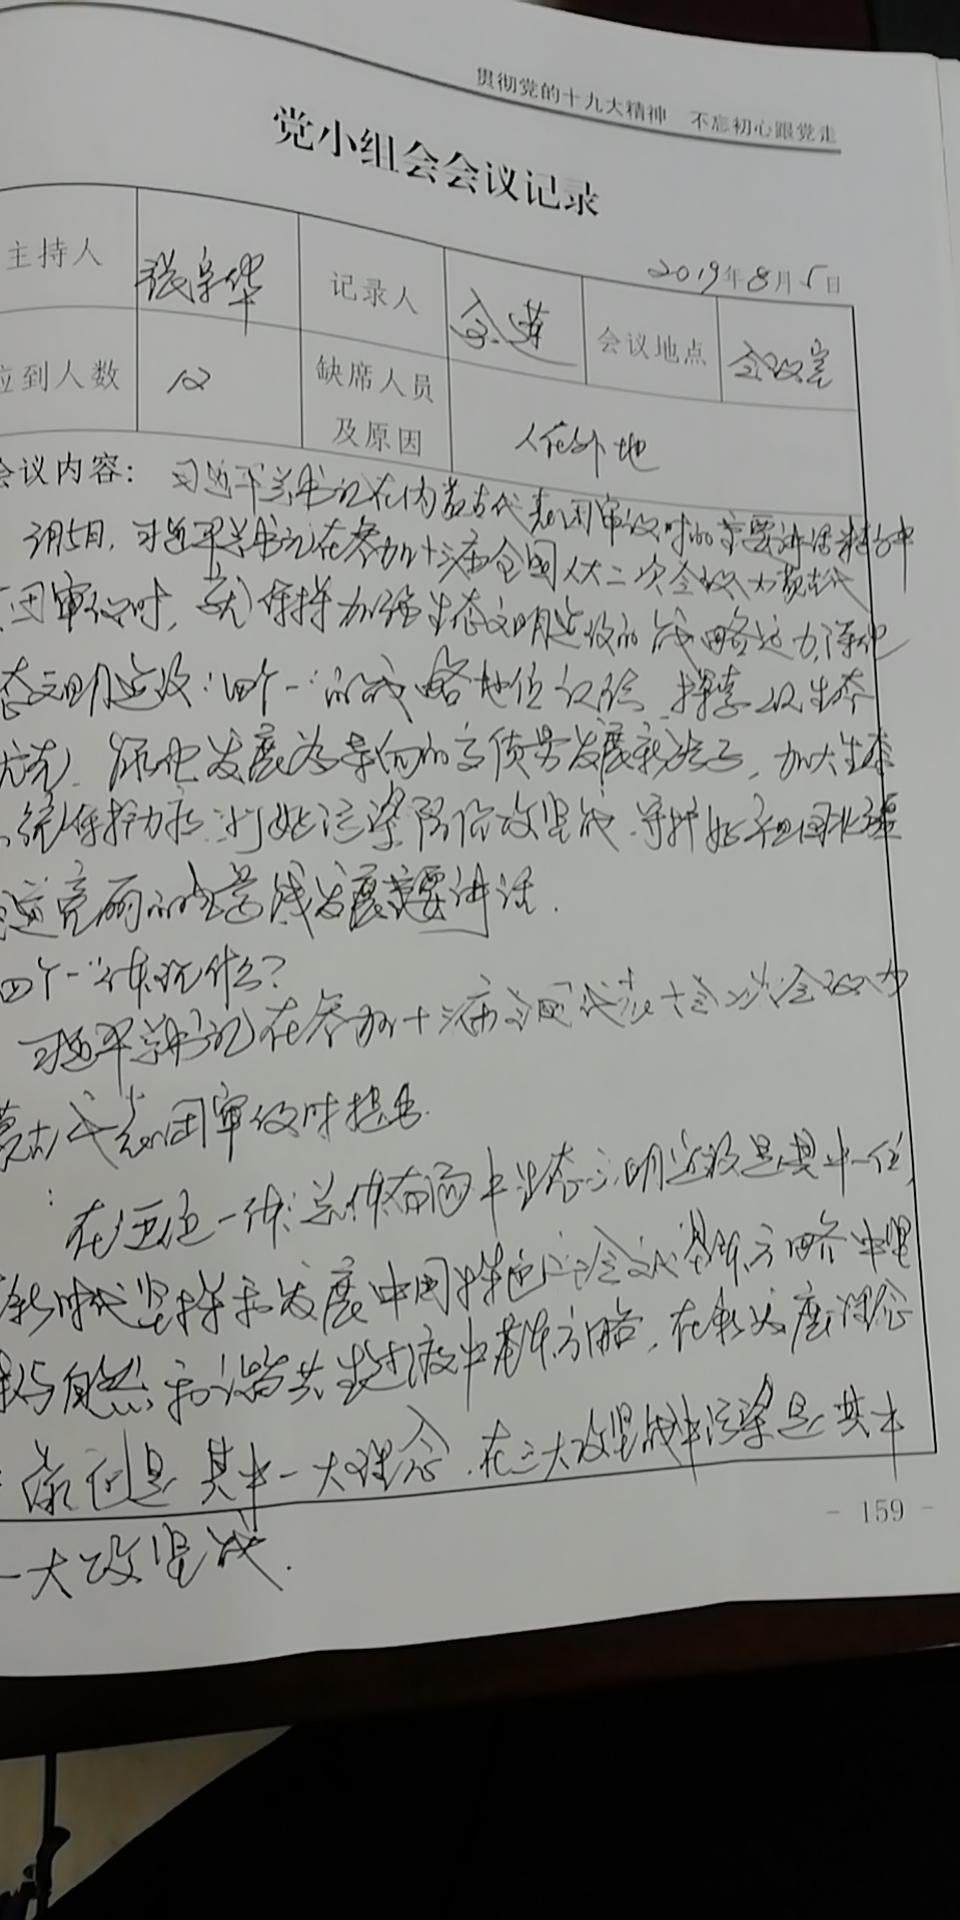 贯彻党的十九大精神 不忘初心跟党走
党小组会会议记录
2019年8月5日
主持人 张宗华 记录人 会议地点 会议室
应到人数 12 缺席人员及原因 人在外地
会议内容：习近平总书记在内蒙古代表团审议时的重要讲话精神
3月5日，习近平总书记在参加十三届全国人大二次会议内蒙古代
团审议时，就保持加强生态文明建设的战略定力，
态文明建设"四个一"的战略地位 探索以生态
优先、绿色发展为导向的高质量发展新路子，加大生态
系统保护力度，打好污染防治攻坚战，守护好祖国北疆
这道亮丽的风景线发表重要讲话.
四个一"体现什么?
习近平总书记在参加十三届全国
蒙古代表团审议时提出.
在五位一体总体布局中生态文明建设是其中一位,
新时代坚持和发展中国特色社会主义基本方略中坚
持人与自然和谐共生是其中基本方略，在新发展理念
绿色是其中一大理念，在三大攻坚战中污染是其中
一大攻坚战.
- 159 -